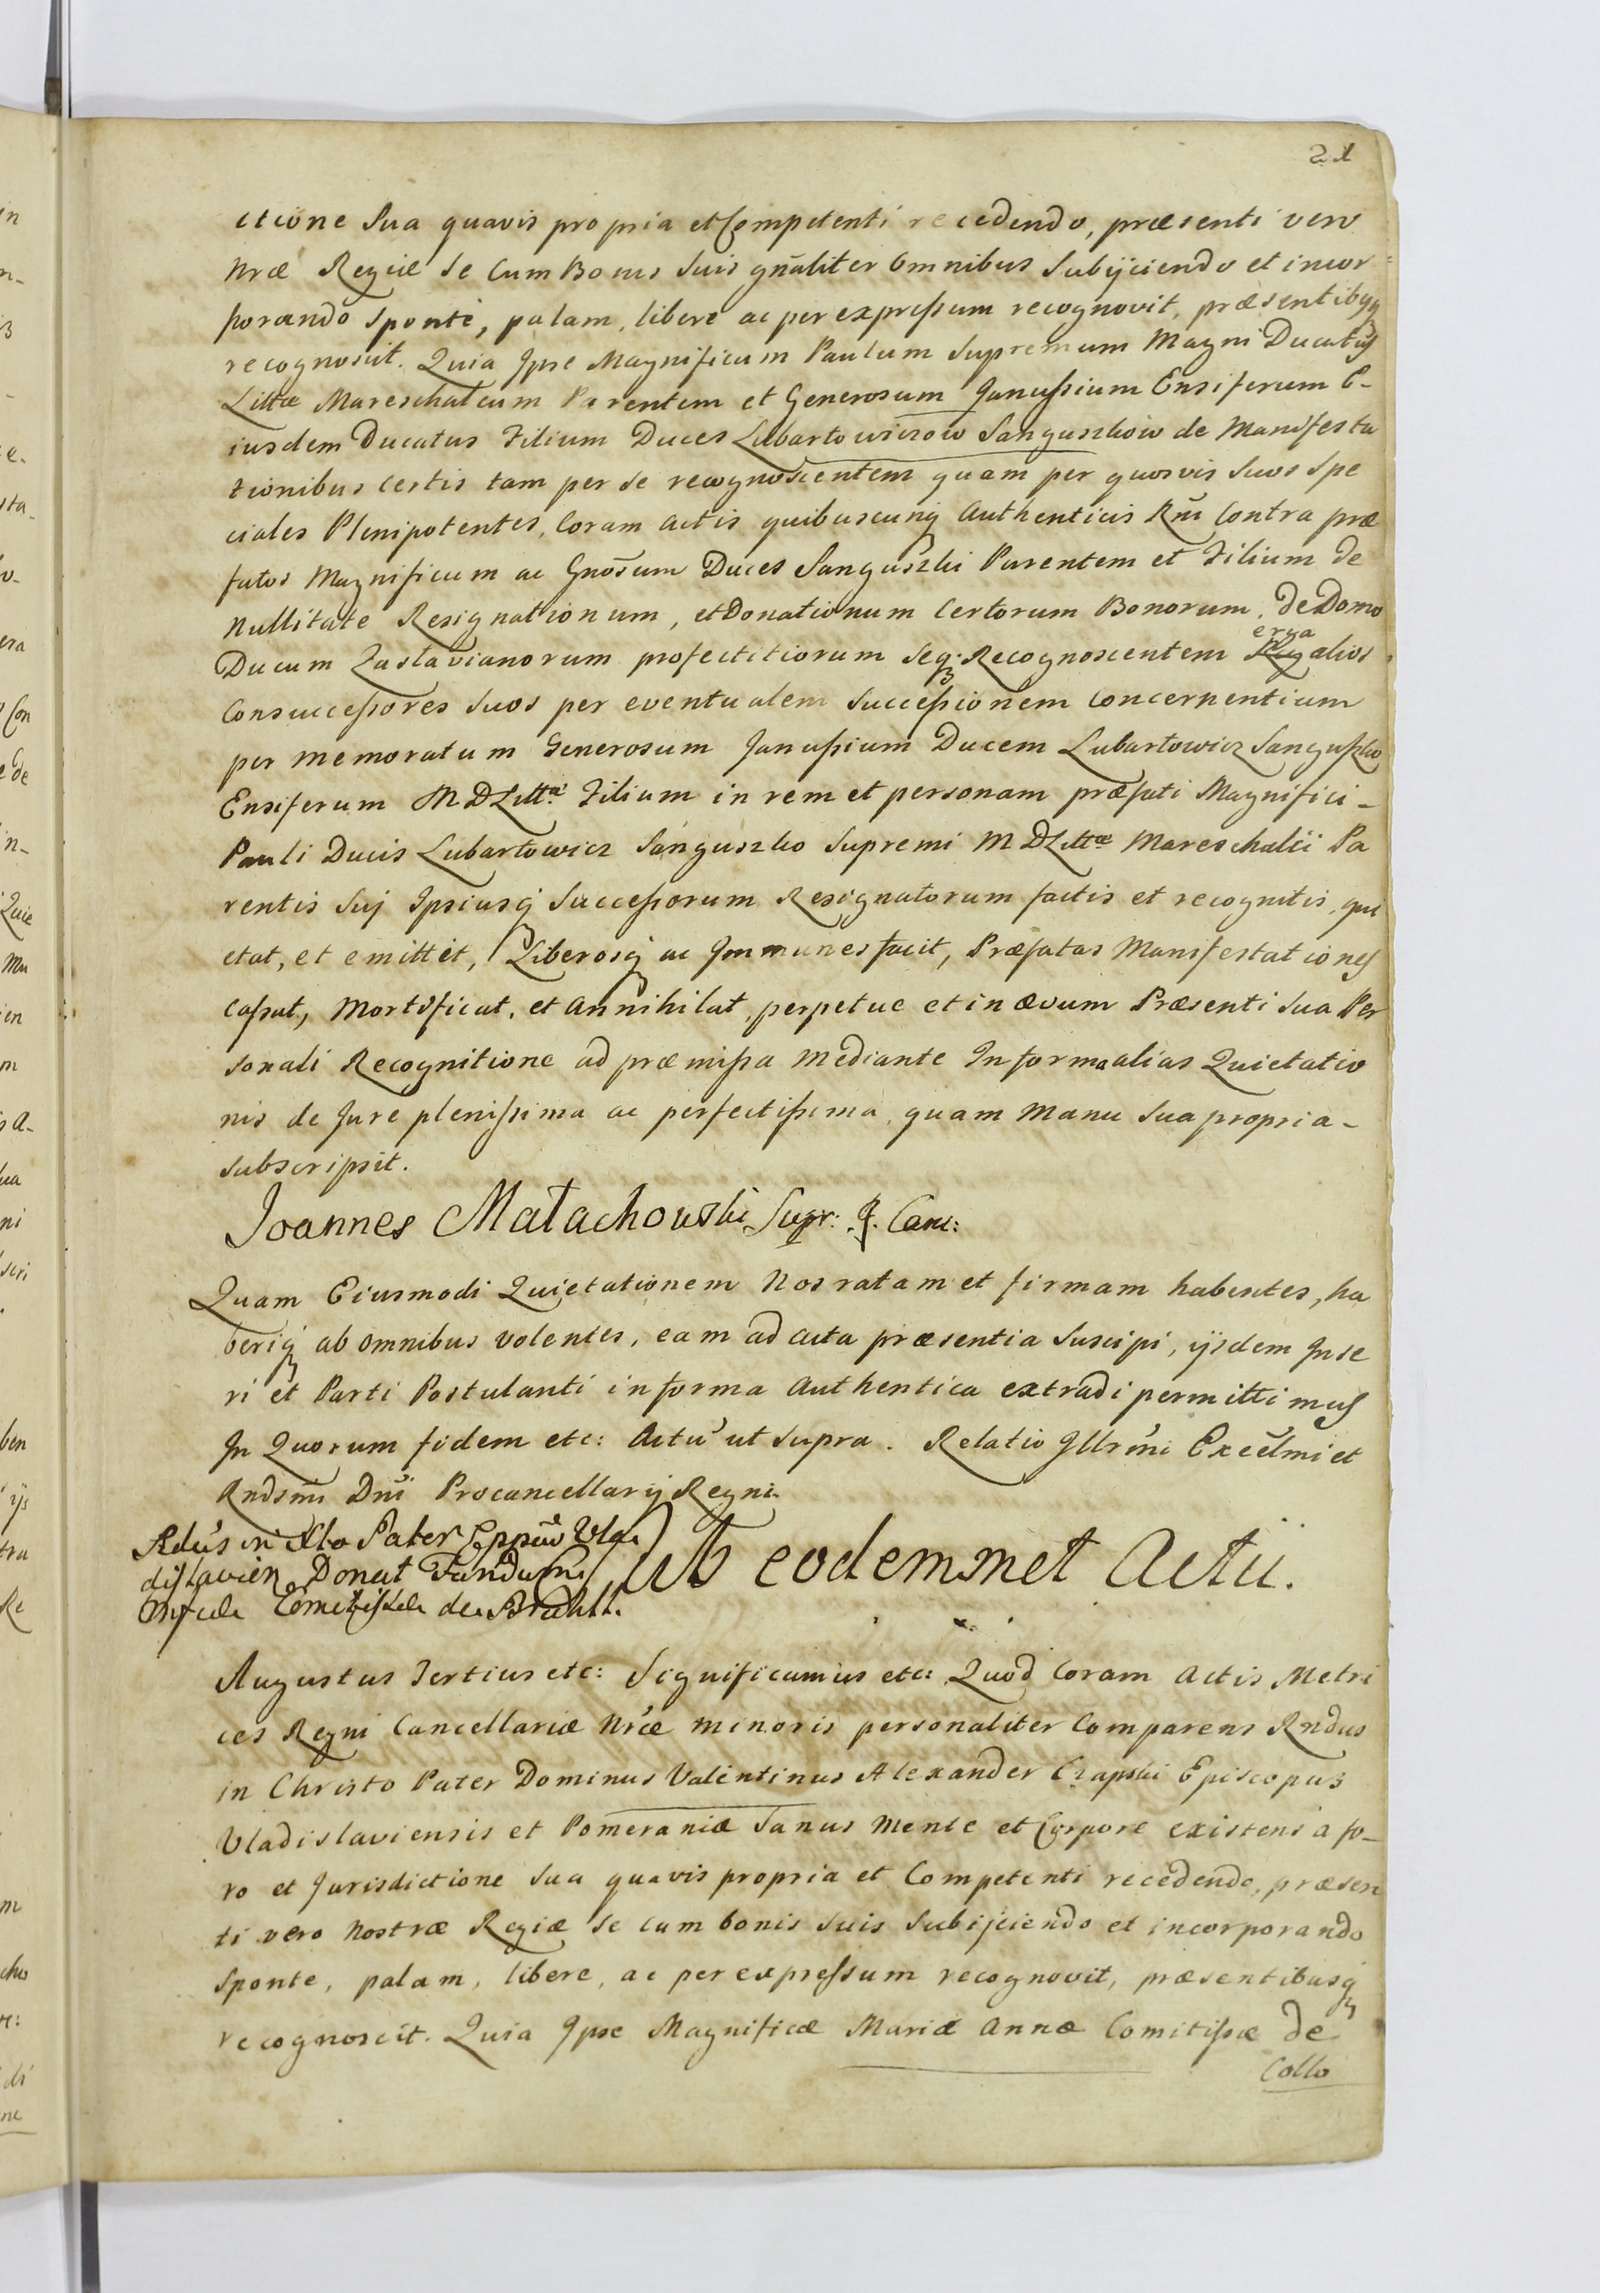 21
ctione Sua quavis propria et Competenti recedendo, præsenti vero
Nræ Regiæ Se Cum Bonis Suis gn̄aliter Omnibus Subijciendo et incor=
porando Sponte, palam, libere ac per expressum recognovit, præsentibusq
recognoscit. Quia Ipse Magnificum Paulum Supremum Magni Ducatus
Littæ Mareschalcum Parentem et Generosum Janussium Ensiferum E-
iusdem Ducatus Filium Duces Lubartowiczow Sanguszkow de Manifesta
tionibus Certis tam per Se recognoscentem quam per quosvis Suos Spe
ciales Plenipotentes, Coram Actis quibuscunq Authenticis Rn̄i Contra præ
fatos Magnificum ac Gnōsum Duces Sanguszki Parentem et Filium de
Nullitate Resignationum, et Donationum Certorum Bonorum, de Domo
Ducum Zaslavianorum profectitiorum Seq Recognoscentem erga alios
Consuccessores Suos per eventualem Successionem Concernentium
per memoratum Generosum Janussium Ducem Lubartowicz Sanguszko
Ensiferum M D Littæ Filium in rem et personam præfati Magnifici-
Pauli Ducis Lubartowicz Sanguszko Supremi M D Littæ Mareschalci Pa
rentis Sui Ipsiusq Successorum Resignatorum factis et recognitis, qui
etat, et emittit, Liberosq ac Immunes facit, Præfatas Manifestationes
Cassat, Mortificat, et Annihilat, perpetue et in ævum Præsenti Sua Per
sonali Recognitione ad præmissa Mediante In forma alias Quietatio
nis de Jure plenissima ac perfectissima, quam Manu Sua propria-
Subscripsit.
Joannes Małachowski Supr: R. Canc:
Quam Eiusmodi Quietationem Nos ratam et firmam habentes, ha
beriq ab omnibus volentes, eam ad acta præsentia Suscipi, ijsdem Inse
ri et Parti Postulanti in forma Authentica extradi permittimus
In Quorum fidem etc: Actū ut Supra. Relatio Illrm̄i Excēlmi et
Rndsm̄i Dn̄i Procancellarij Regni.
Rdūs in Xto Pater Eppūs Vla
dislavien Donat
Comitissæ de Brühl.
Ab eodemmet Actū.
Augustus Tertius etc: Significamus etc: Quod Coram Actis Metri
ces Regni Cancellariæ Nrǣ minoris personaliter Comparens Rndus
in Christo Pater Dominus Valentinus Alexander Czapski Episcopus
Vladislaviensis et Pomeraniæ Sanus Mente et Corpore existens a fo-
ro et Jurisdictione Sua quavis propria et Competenti recedendo, præsen
ti vero Nostræ Regiæ Se cum bonis suis Subijciendo et incorporando
Sponte, palam, libere, ac per expressum recognovit, præsentibusq
recognoscit. Quia Ipse Magnificæ Mariæ Annæ Comitissæ de
Collo